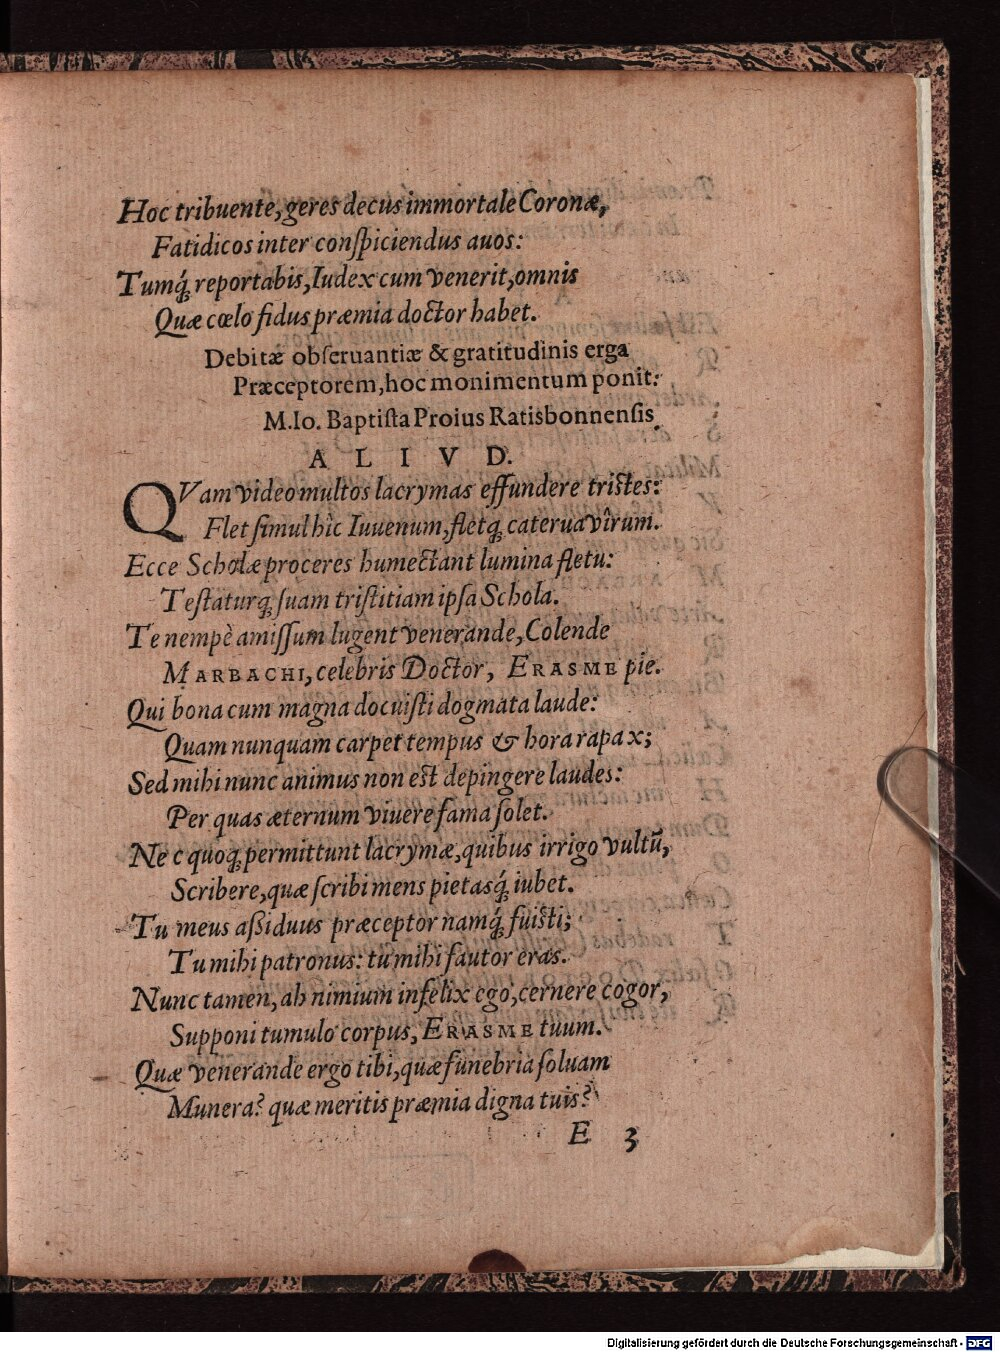 Hoc tribuente, geres decus immortale Coronæ,
Fatidicos inter conſpiciendus auos:
Tumq́; reportabis, Iudex cum venerit, omnis
Quæ cœlo fidus præmia doctor habet.
Debitæ obſeruantiæ & gratitudinis erga
Præceptorem, hoc monimentum ponit:
M. Io. Baptiſta Proius Ratisbonnenſis.
ALIVD.
QVam video multos lacrymas effundere triſtes:
Flet ſimul hîc Iuuenum, fletq; caterua vîrum.
Ecce Scholæ proceres humectant lumina fletu:
Teſtaturq; ſuam triſtitiam ipſa Schola.
Te nempè amiſſum lugent venerande, Colende
MARBACHI, celebris Doctor, ERASME pie.
Qui bona cum magna docuiſti dogmata laude:
Quam nunquam carpet tempus & hora rapax;
Sed mihi nunc animus non eſt depingere laudes:
Per quas æternum viuere fama ſolet.
Nec quoq; permittunt lacrymæ, quibus irrigo vultũ,
Scribere, quæ ſcribi mens pietasq́; iubet.
Tu meus aßiduus præceptor namq́; fuiſti;
Tu mihi patronus: tu mihi fautor eras.
Nunc tamen, ah nimium infelix ego, cernere cogor,
Supponi tumulo corpus, ERASME tuum.
Quæ venerande ergo tibi, quæ funebria ſoluam
Munera? quæ meritis præmia digna tuis?
E 3
Digitalisierung gefördert durch die Deutsche Forschungsgemeinschaft - DFG